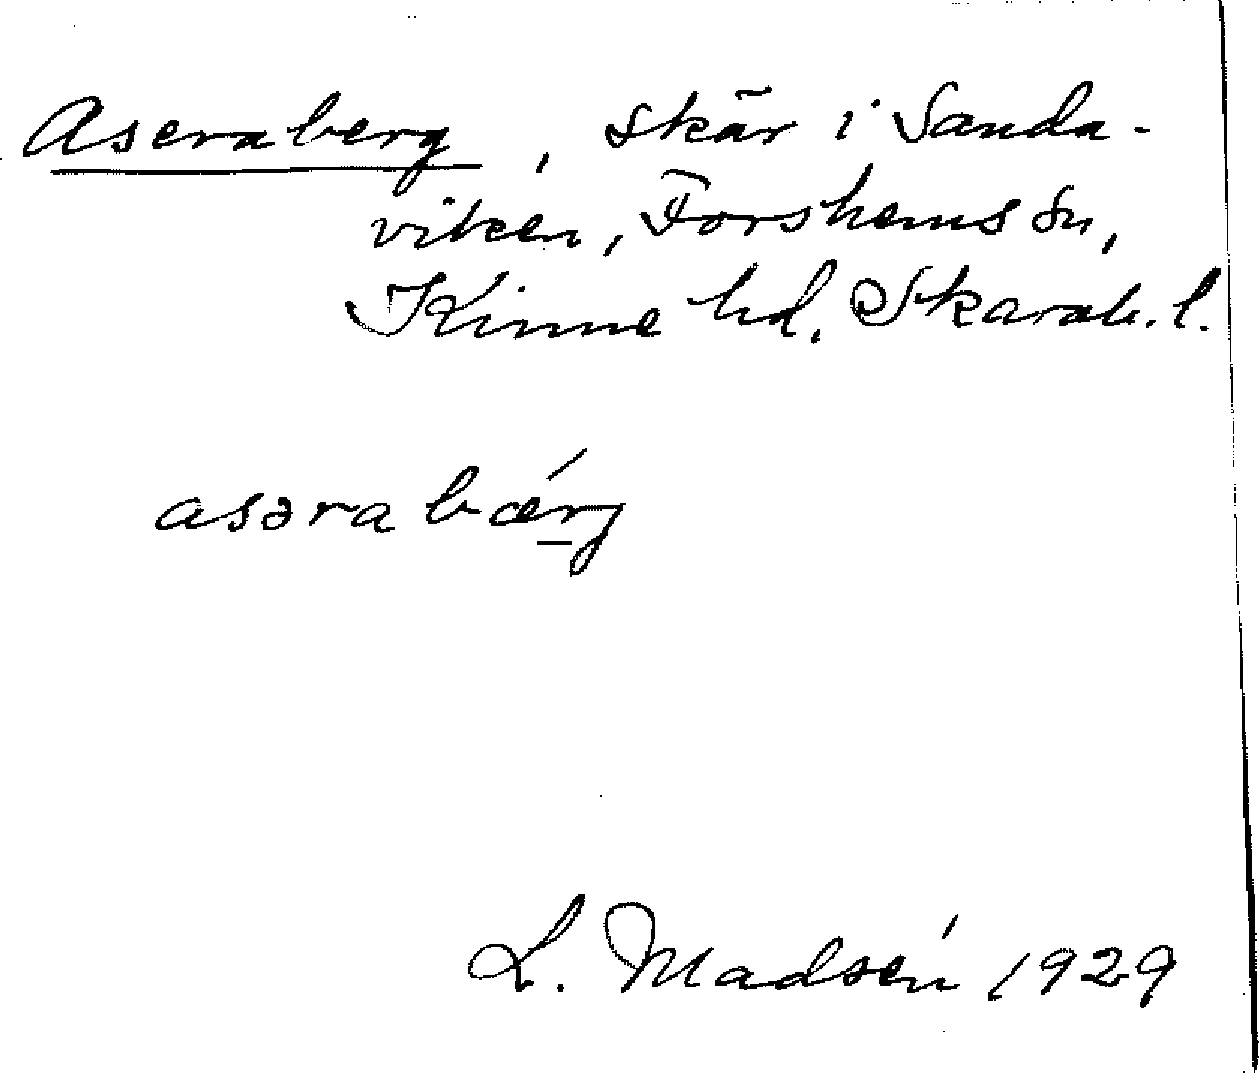 Aseraberg, skär i Sanda-
viken, Forshems sn,
Kinne hd, Skarab. l.
asəra bærg
L. Madsén 1929